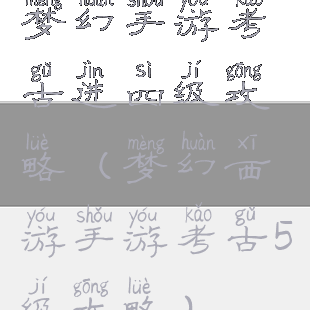 mèng huàn shǒu yóu kǎo
梦幻手游考
gǔ jìn sì jí gōng
古进四级攻
lüè mèng huàn xī
略（梦幻西
yóu shǒu yóu kǎo gǔ
游手游考古5
jí gōng lüè
级攻略）